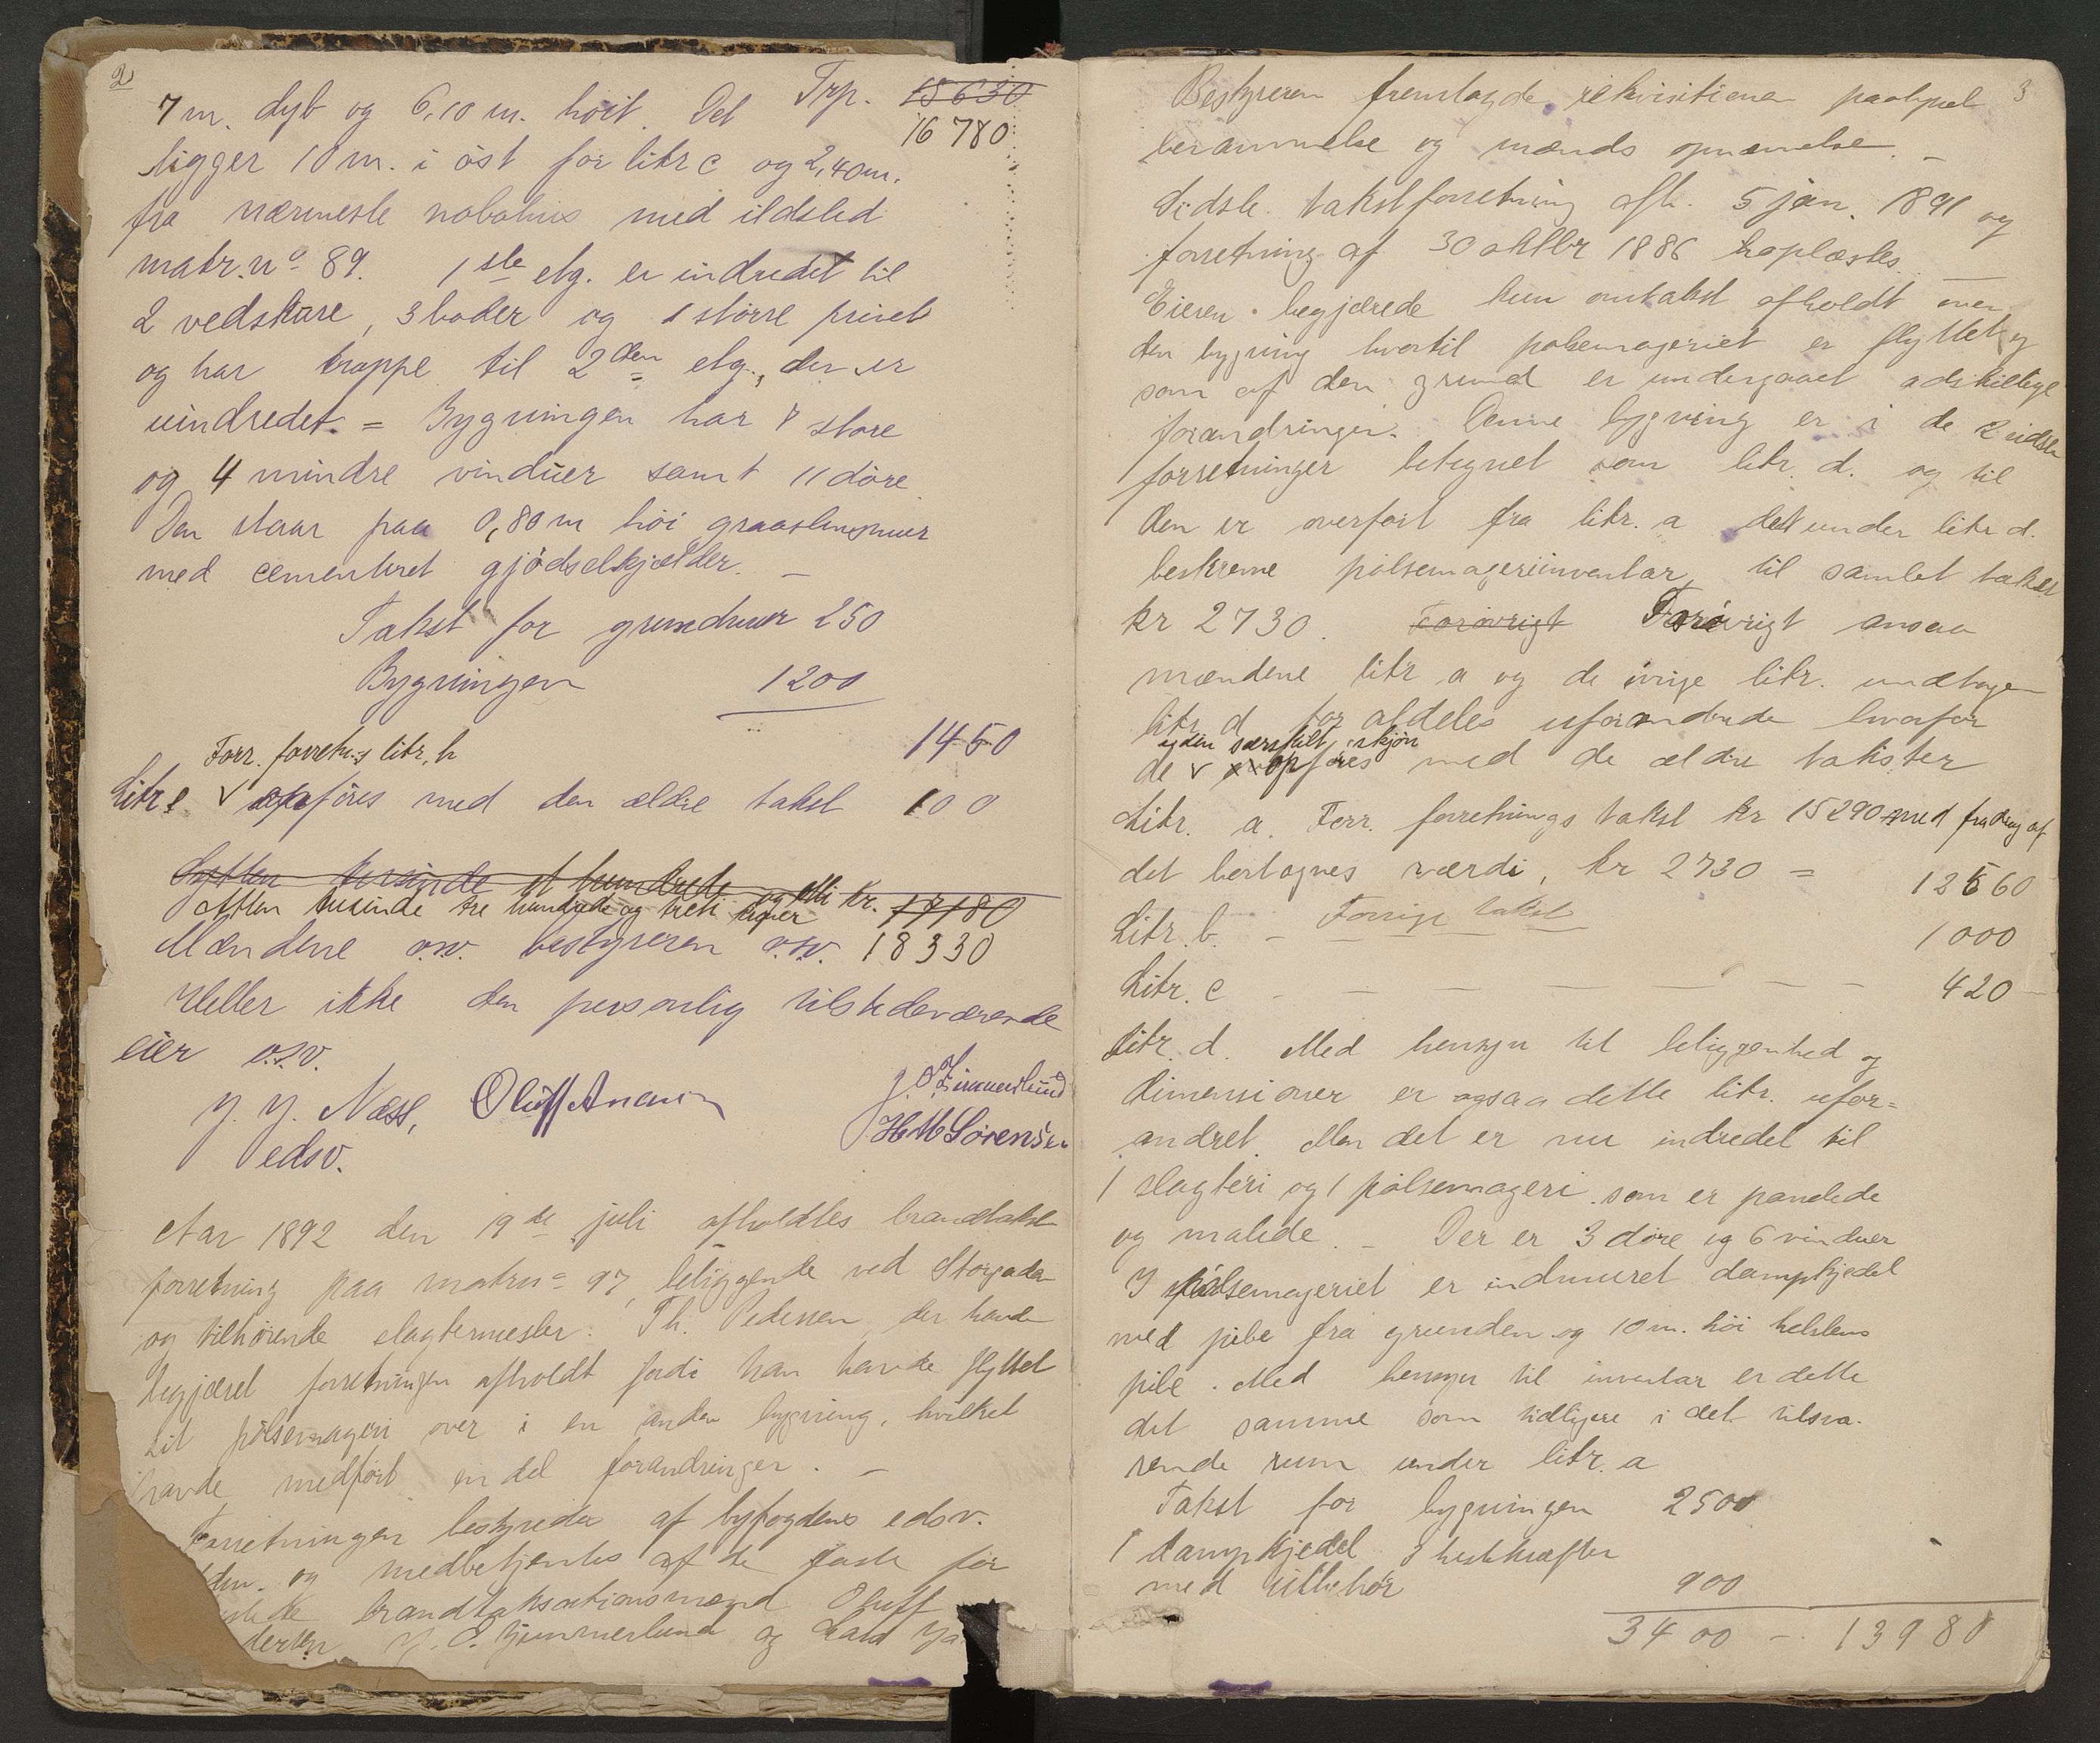 2
7 m. dyb og 6,10 m. höit. Det Trp. 15630
16 780
ligger 10 m. i öst for litr c og 2,40 m.
fra nærmeste nabohus med ildsted
matr. nº 89. 1ste etg. er indredet til
2 vedskure, 3 boder og 1 större privet
og har trappe til 2den etg., der er
uindredet. = Bygningen har 7 store
og 4 mindre vinduer samt 11 döre
Den staar paa 0,80 m höi graastensmuur
med cementeret gjödselkjælder. –
Takst for grundmur 250
Bygningen 1200
1450
Forr. forretn.s litr. h
Litr e v opföres med den ældre takst 100
Sytten tusinde et hundrede og otti Kr. 17180
Atten tusinde tre hundrede og treti kroner
Mændene o.s.v. bestyreren o.s.v. 18330
Heller ikke den personlig tilstedeværende
eier o.s.v.
J. J. Næss, Oluff Anersen J. O. Zimmerlund
edsv. H M Sörensen
Aar 1892 den 19de juli afholdtes brandtakst
forretning paa matr nº 97, beliggende ved Storgaden
og tilhörende slagtermester Th. Pedersen, der havde
begjæret forretningen afholdt fordi han havde flyttet
sit pölsemageri over i en anden bygning, hvilket
havde medfört en del forandringer. –
Forretningen bestyredes af byfogdens edsv.
fldm. og medbetjentes af de faste for
brandtaksationsmænd Oluff
dersen J. O. Zimmerlund og Lars Ja
3
Bestyreren fremlagde rekvisitionen paategnet
berammelse og mænds opnævnelse. –
Sidste takstforretning afh. 5 jan. 1891 og
forretning af 30 oktbr 1886 oplæstes. –
Eieren begjærede kun omtakst afholdt over
den bygning hvortil pölsemageriet er flyttet og
som af den grund er undergaaet adskillige
forandringer. Denne bygning er i de 2 sidste
forretninger betegnet som litr. d. og til
den er overfört fra litr. a det under litr d.
beskrevne pölsemageriinventar, til samlet takst
kr 2730. Forövrigt Forövrigt ansaa
mændene litr a og de övrige litr. undtagen
litr. d for aldeles uforandrede hvorfor
uden særskilt skjön
de v opföres med de ældre takster
Litr. a. Forr. forretnings takst kr 15290 med fradrag af
det borttagnes værdi, kr 2730 = 12560
Litr. b. – Forrige takst 1000
Litr. c – – – – – – – 420
Litr. d. Med hensyn til beliggenhed og
dimensioner er ogsaa dette litr. ufor=
andret. Men det er nu indredet til
1 slagteri og 1 pölsemageri som er panelede
og malede. – Der er 3 döre og 6 vinduer
I pölsemageriet er indmuret dampkjedel
med pibe fra grunden og 10 m. höi helstens
pibe. Med hensyn til inventar er dette
det samme som tidligere i det tilsva-
rende rum under litr. a
Takst for bygningen 2500
1 dampkjedel 3 hestekræfter
med tilbehör 900
3400 – 13980